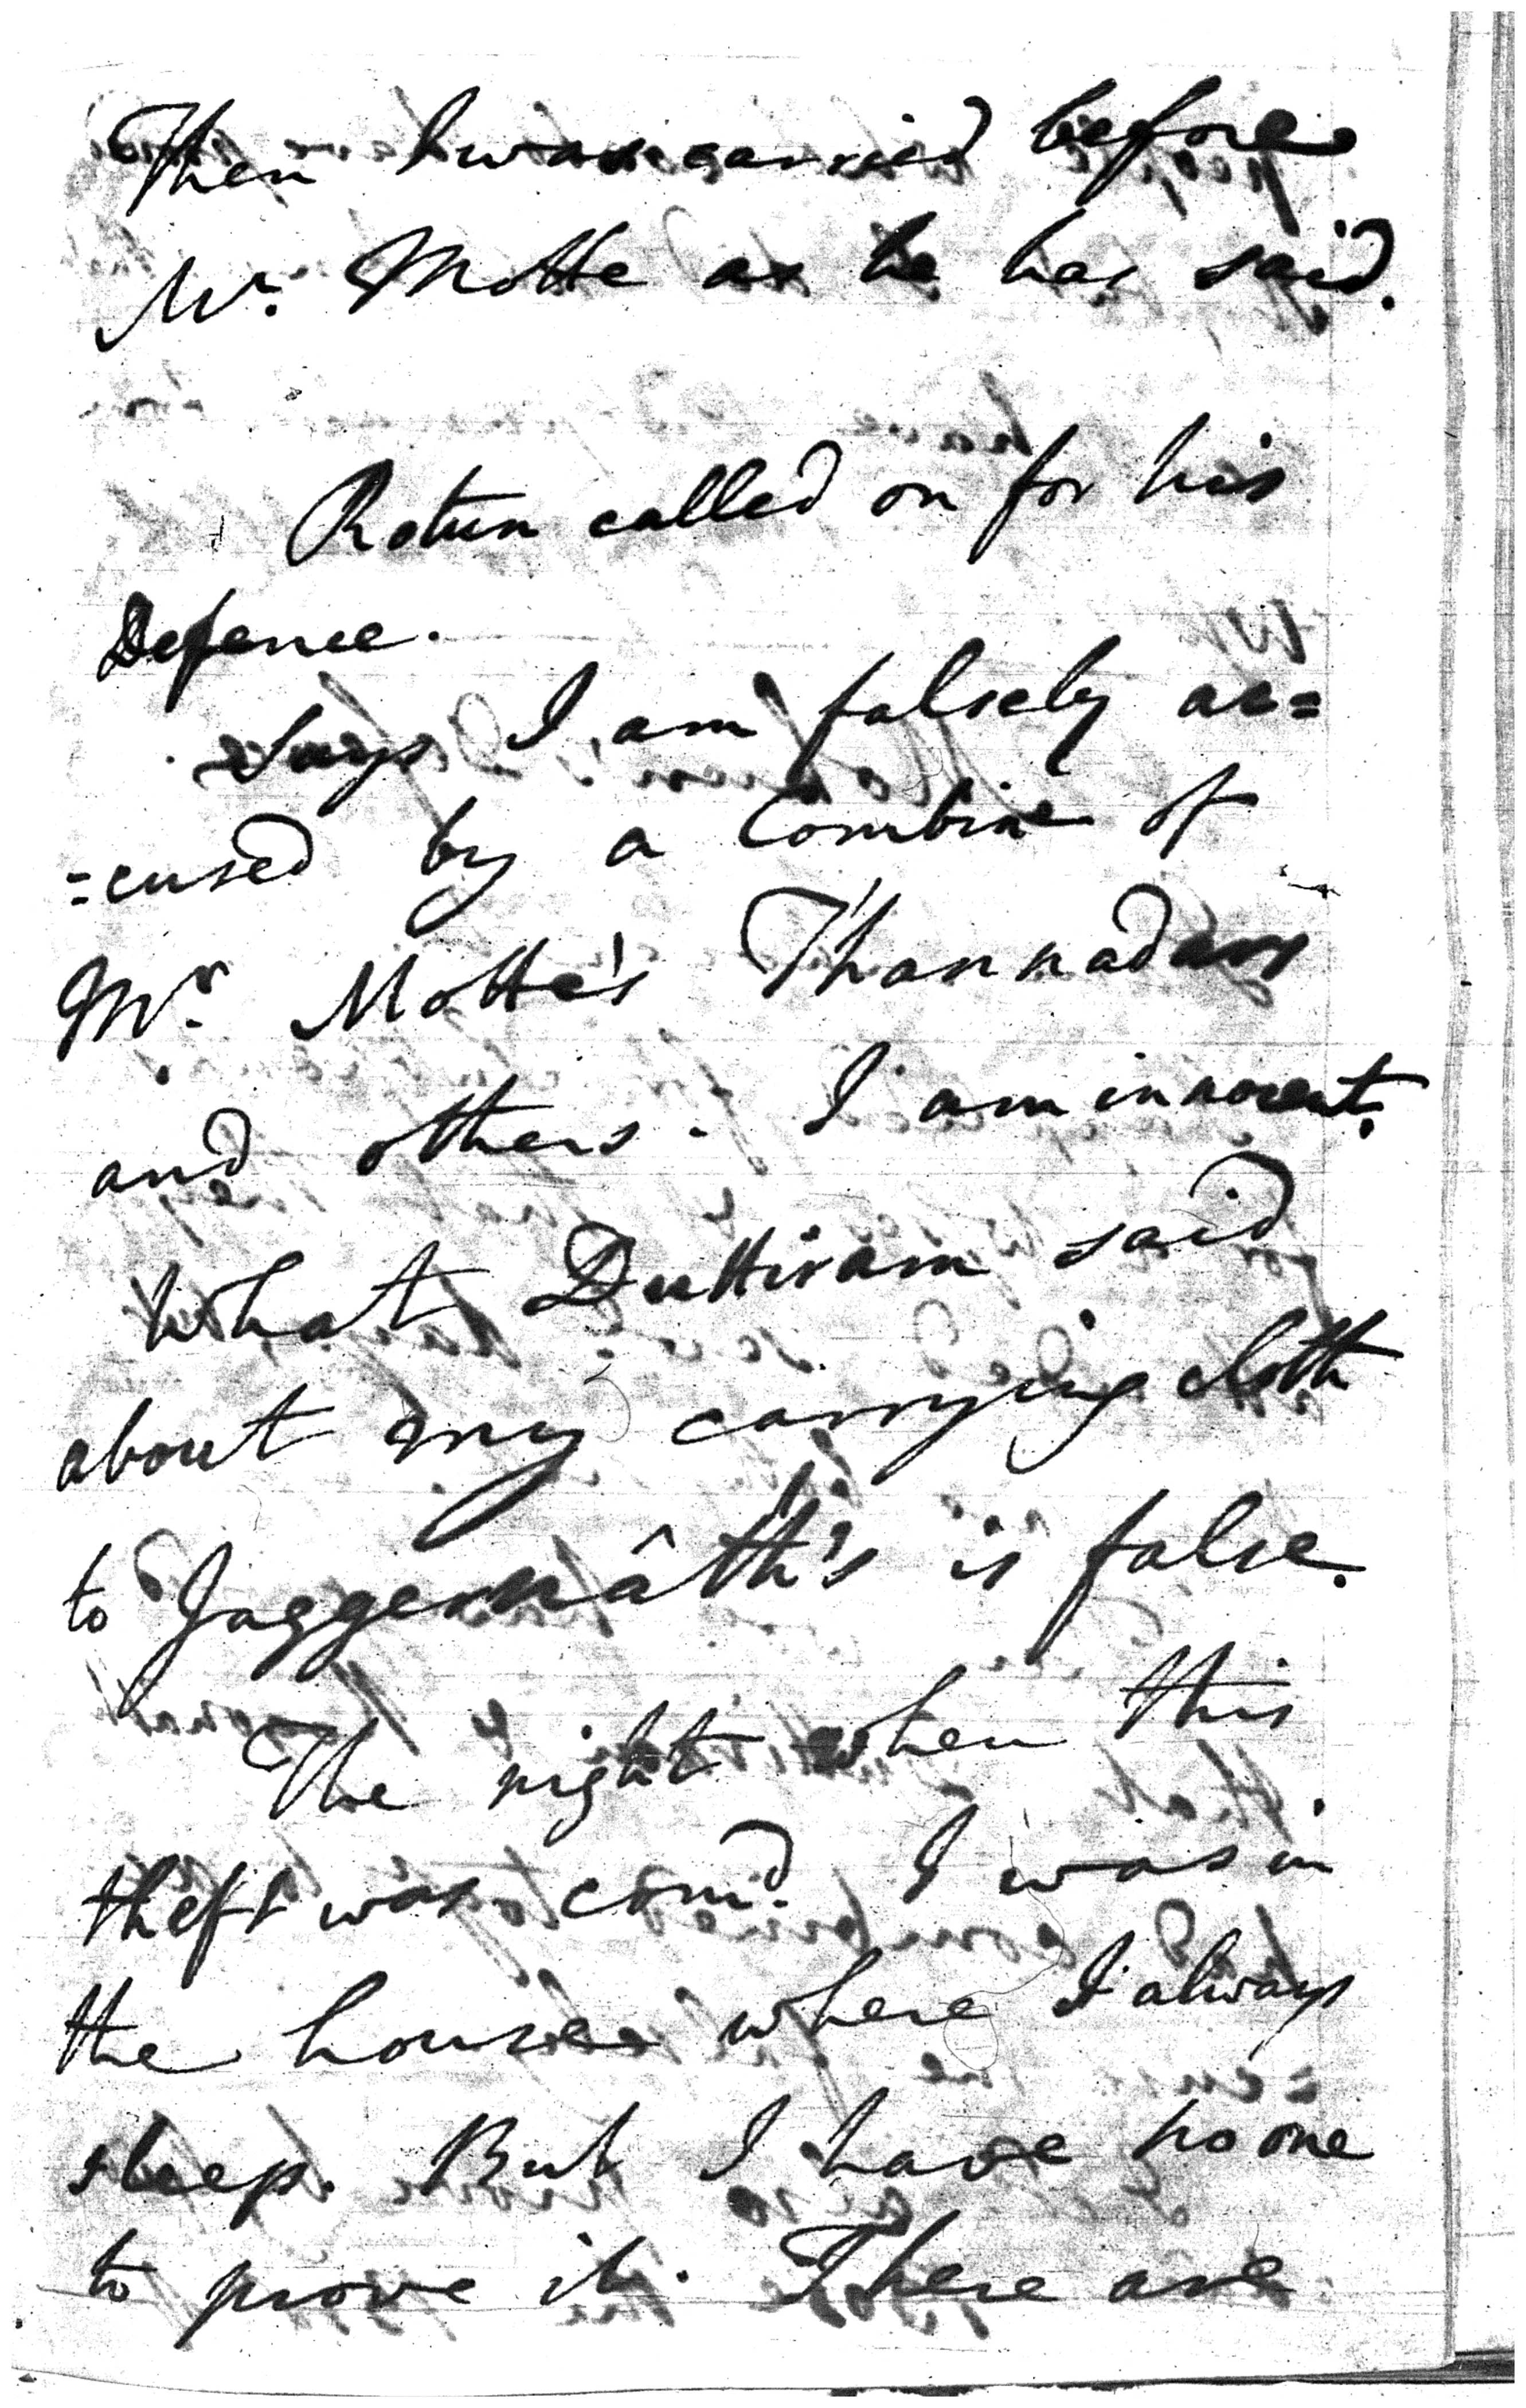 Then I was carried before
Mr. Motte as he has said.
Rotun called on for his
Defence.
Says I am falsely ac=
=cused by a Combine of
Mr. Motte's Thannadars
and others. I am innocent.
What Duttiram said
about my carrying cloth
to Jaggernâth's is false.
The night when this
theft was comd. I was in
the house where I always
sleep. But I have no one
to prove it. There are